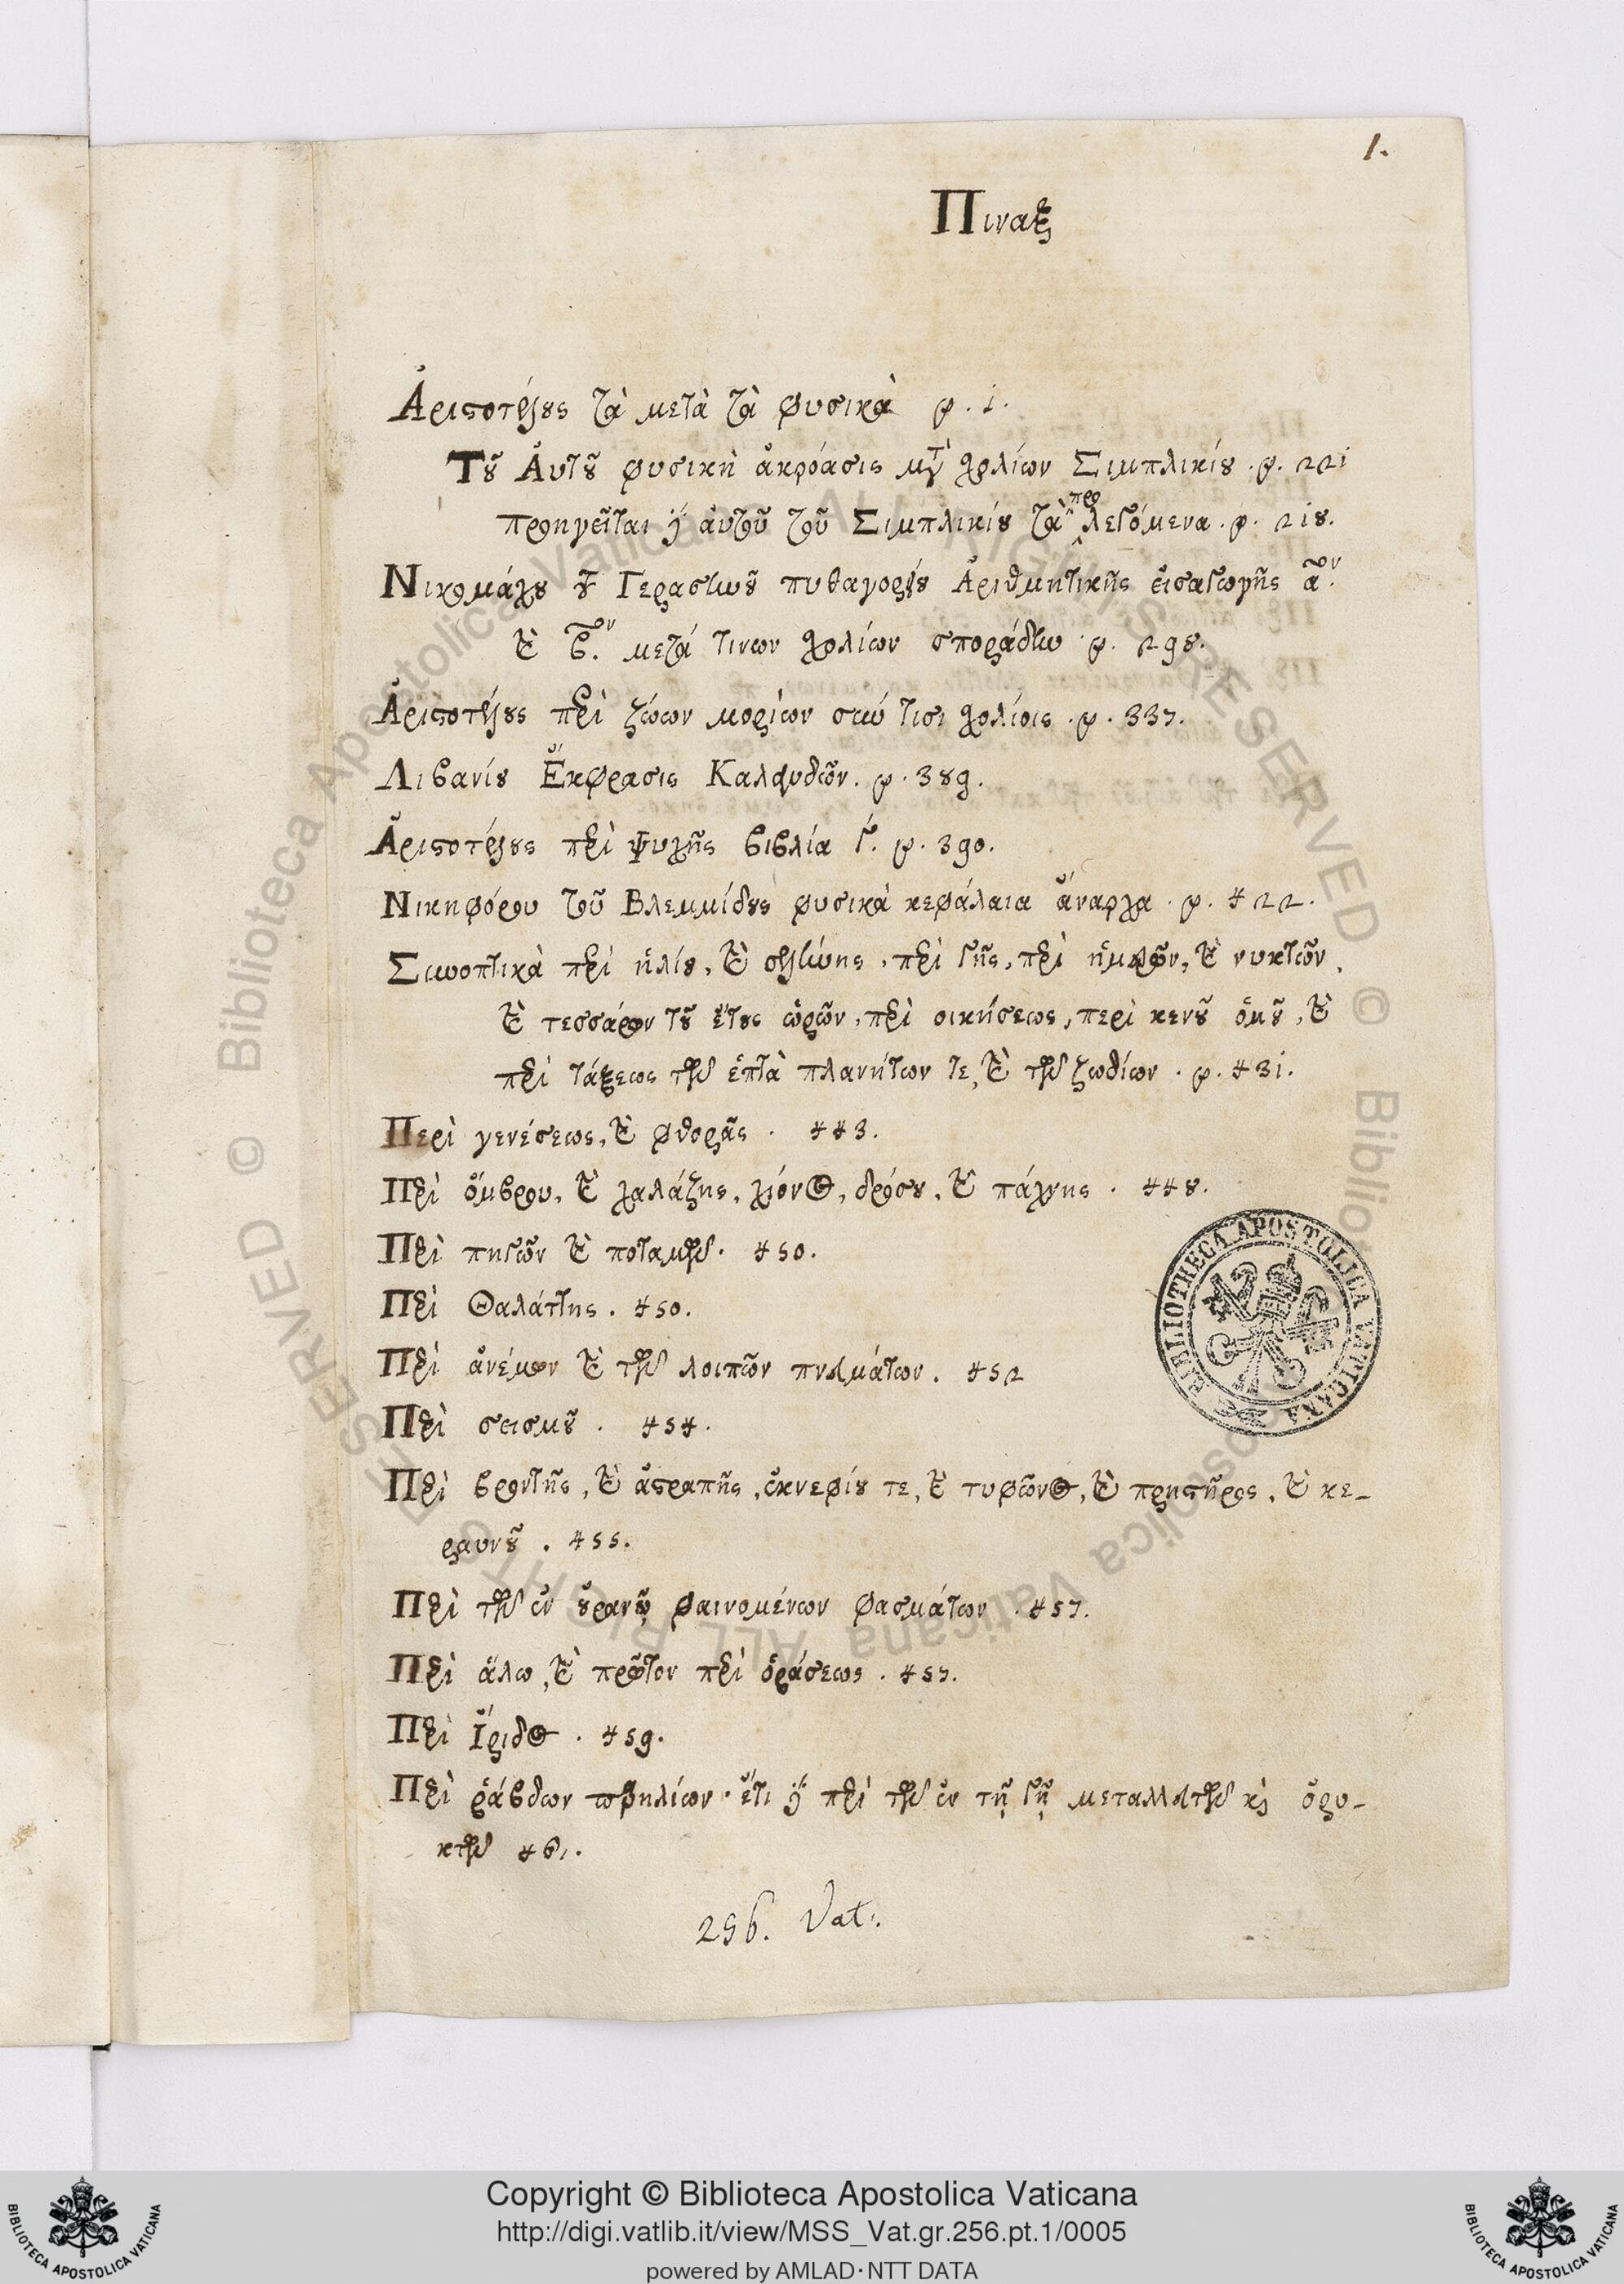 1.
Πιναξ
Ἀριστοτέλους τὰ μετὰ τὰ φυσικὰ φ. 1.
Τοῦ Αὐτοῦ φυσικὴ ἀκρόασις μετὰ σχολίων Σιμπλικίου . φ. 221
προηγεῖται δὲ αὐτοῦ τοῦ Σιμπλικίου τὰ προλεγόμενα . φ. 218.
Νικομάχου τοῦ Γερασηνοῦ πυθαγορείου Ἀριθμητικῆς εἰσαγωγῆς αον
καὶ βον. μετά τινων σχολίων σποράδην φ. 298.
Ἀριστοτέλους περὶ ζώων μορίων σύν τισι σχολίοις . φ. 337.
Λιβανίου Ἔκφρασις Καλανδῶν. φ. 389.
Ἀριστοτέλους περὶ Ψυχῆς βιβλία γ. φ. 390.
Νικηφόρου τοῦ Βλεμμίδους φυσικὰ κεφάλαια ἄναρχα . φ. 422.
Συνοπτικὰ περὶ ἡλίου, καὶ σελήνης, περὶ γῆς, περὶ ἡμερῶν, καὶ νυκτῶν,
καὶ τεσσάρων τοῦ ἔτους ὡρῶν, περὶ οἰκήσεως, περὶ κενοῦ ὁμοῦ, καὶ
περὶ τάξεως τῶν ἑπτὰ πλανήτων τε, καὶ τῶν ζωδίων . φ. 431.
Περὶ γενέσεως, καὶ φθορᾶς . 443.
Περὶ ὄμβρου, καὶ χαλάζης, χιόνος, δρόσου, καὶ πάχνης . 448.
Περὶ πηγῶν καὶ ποταμῶν . 450.
Περὶ Θαλάττης . 450.
Περὶ ἀνέμων καὶ τῶν λοιπῶν πνευμάτων . 452
Περὶ σεισμοῦ . 454.
Περὶ βροντῆς, καὶ ἀστραπῆς, ἐκνεφίου τε, καὶ τυφῶνος, καὶ πρηστῆρος, καὶ κε-
ραυνοῦ . 455.
Περὶ τῶν ἐν οὐρανῷ φαινομένων φασμάτων . 457.
Περὶ ἅλω, καὶ πρῶτον περὶ ὁράσεως . 457.
Περὶ Ἴριδος . 459.
Περὶ ῥάβδων παρηλίων . ἔτι δὲ περὶ τῶν ἐν τῇ γῇ μεταλλευτῶν καὶ ὀρυ-
κτῶν 461.
256. Vat.
BIBLIOTHECA APOSTOLICA VATICANA
© Biblioteca Apostolica Vaticana ALL RIGHTS RESERVED
Copyright © Biblioteca Apostolica Vaticana
http://digi.vatlib.it/view/MSS_Vat.gr.256.pt.1/0005
powered by AMLAD·NTT DATA
BIBLIOTECA APOSTOLICA VATICANA
BIBLIOTECA APOSTOLICA VATICANA